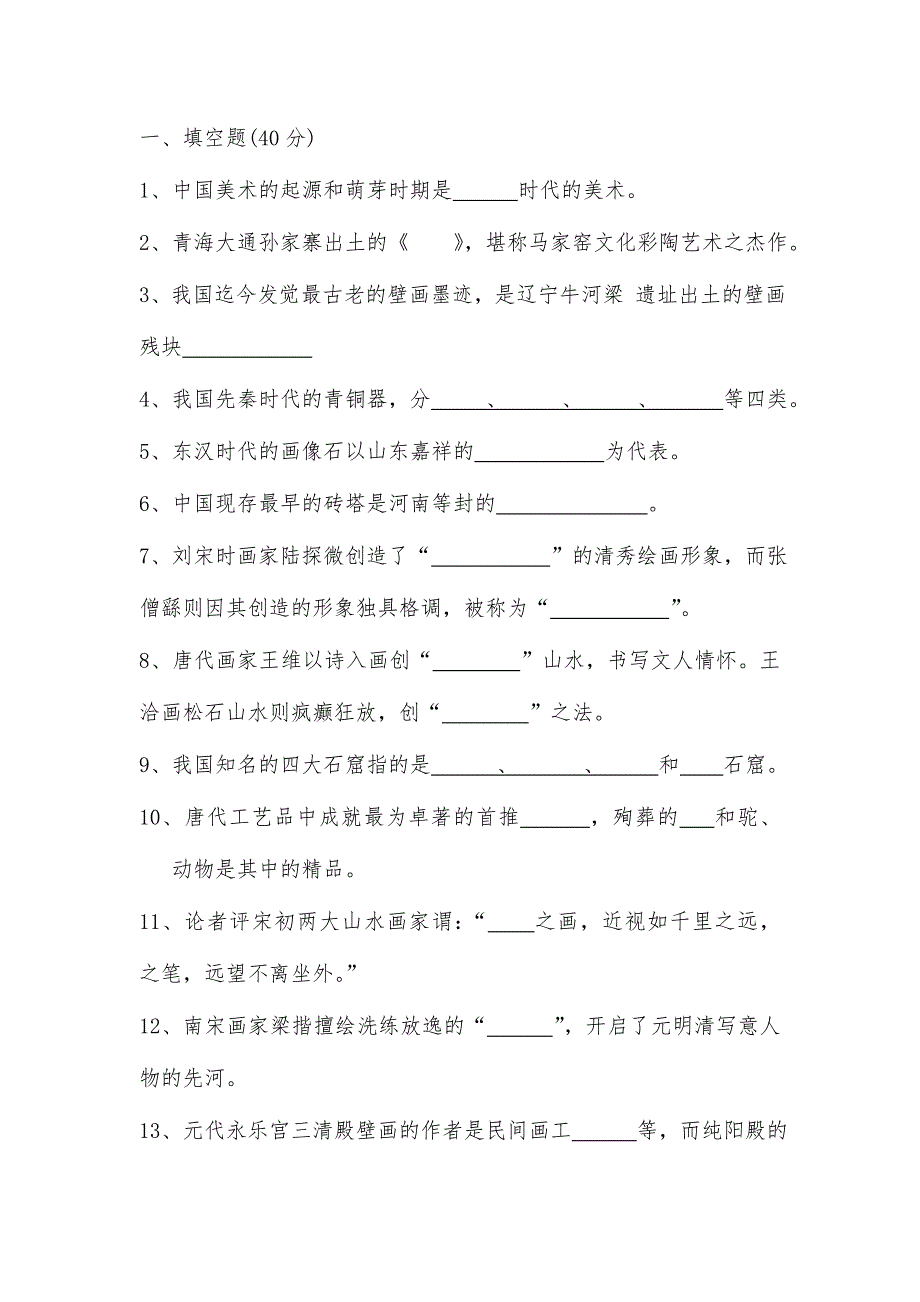 一、填空题(40分)
1、中国美术的起源和萌芽时期是______时代的美术。
2、青海大通孙家寨出土的《    》，堪称马家窑文化彩陶艺术之杰作。
3、我国迄今发觉最古老的壁画墨迹，是辽宁牛河梁 遗址出土的壁画
残块____________
4、我国先秦时代的青铜器，分_____、_____、_____、_______等四类。
5、东汉时代的画像石以山东嘉祥的____________为代表。
6、中国现存最早的砖塔是河南等封的______________。
7、刘宋时画家陆探微创造了“___________”的清秀绘画形象，而张
僧繇则因其创造的形象独具格调，被称为“___________”。
8、唐代画家王维以诗入画创“________”山水，书写文人情怀。王
洽画松石山水则疯癫狂放，创“________”之法。
9、我国知名的四大石窟指的是______、_______、______和____石窟。
10、唐代工艺品中成就最为卓著的首推______，殉葬的___和驼、
动物是其中的精品。
11、论者评宋初两大山水画家谓：“____之画，近视如千里之远，
之笔，远望不离坐外。”
12、南宋画家梁揩擅绘洗练放逸的“______”，开启了元明清写意人
物的先河。
13、元代永乐宫三清殿壁画的作者是民间画工______等，而纯阳殿的